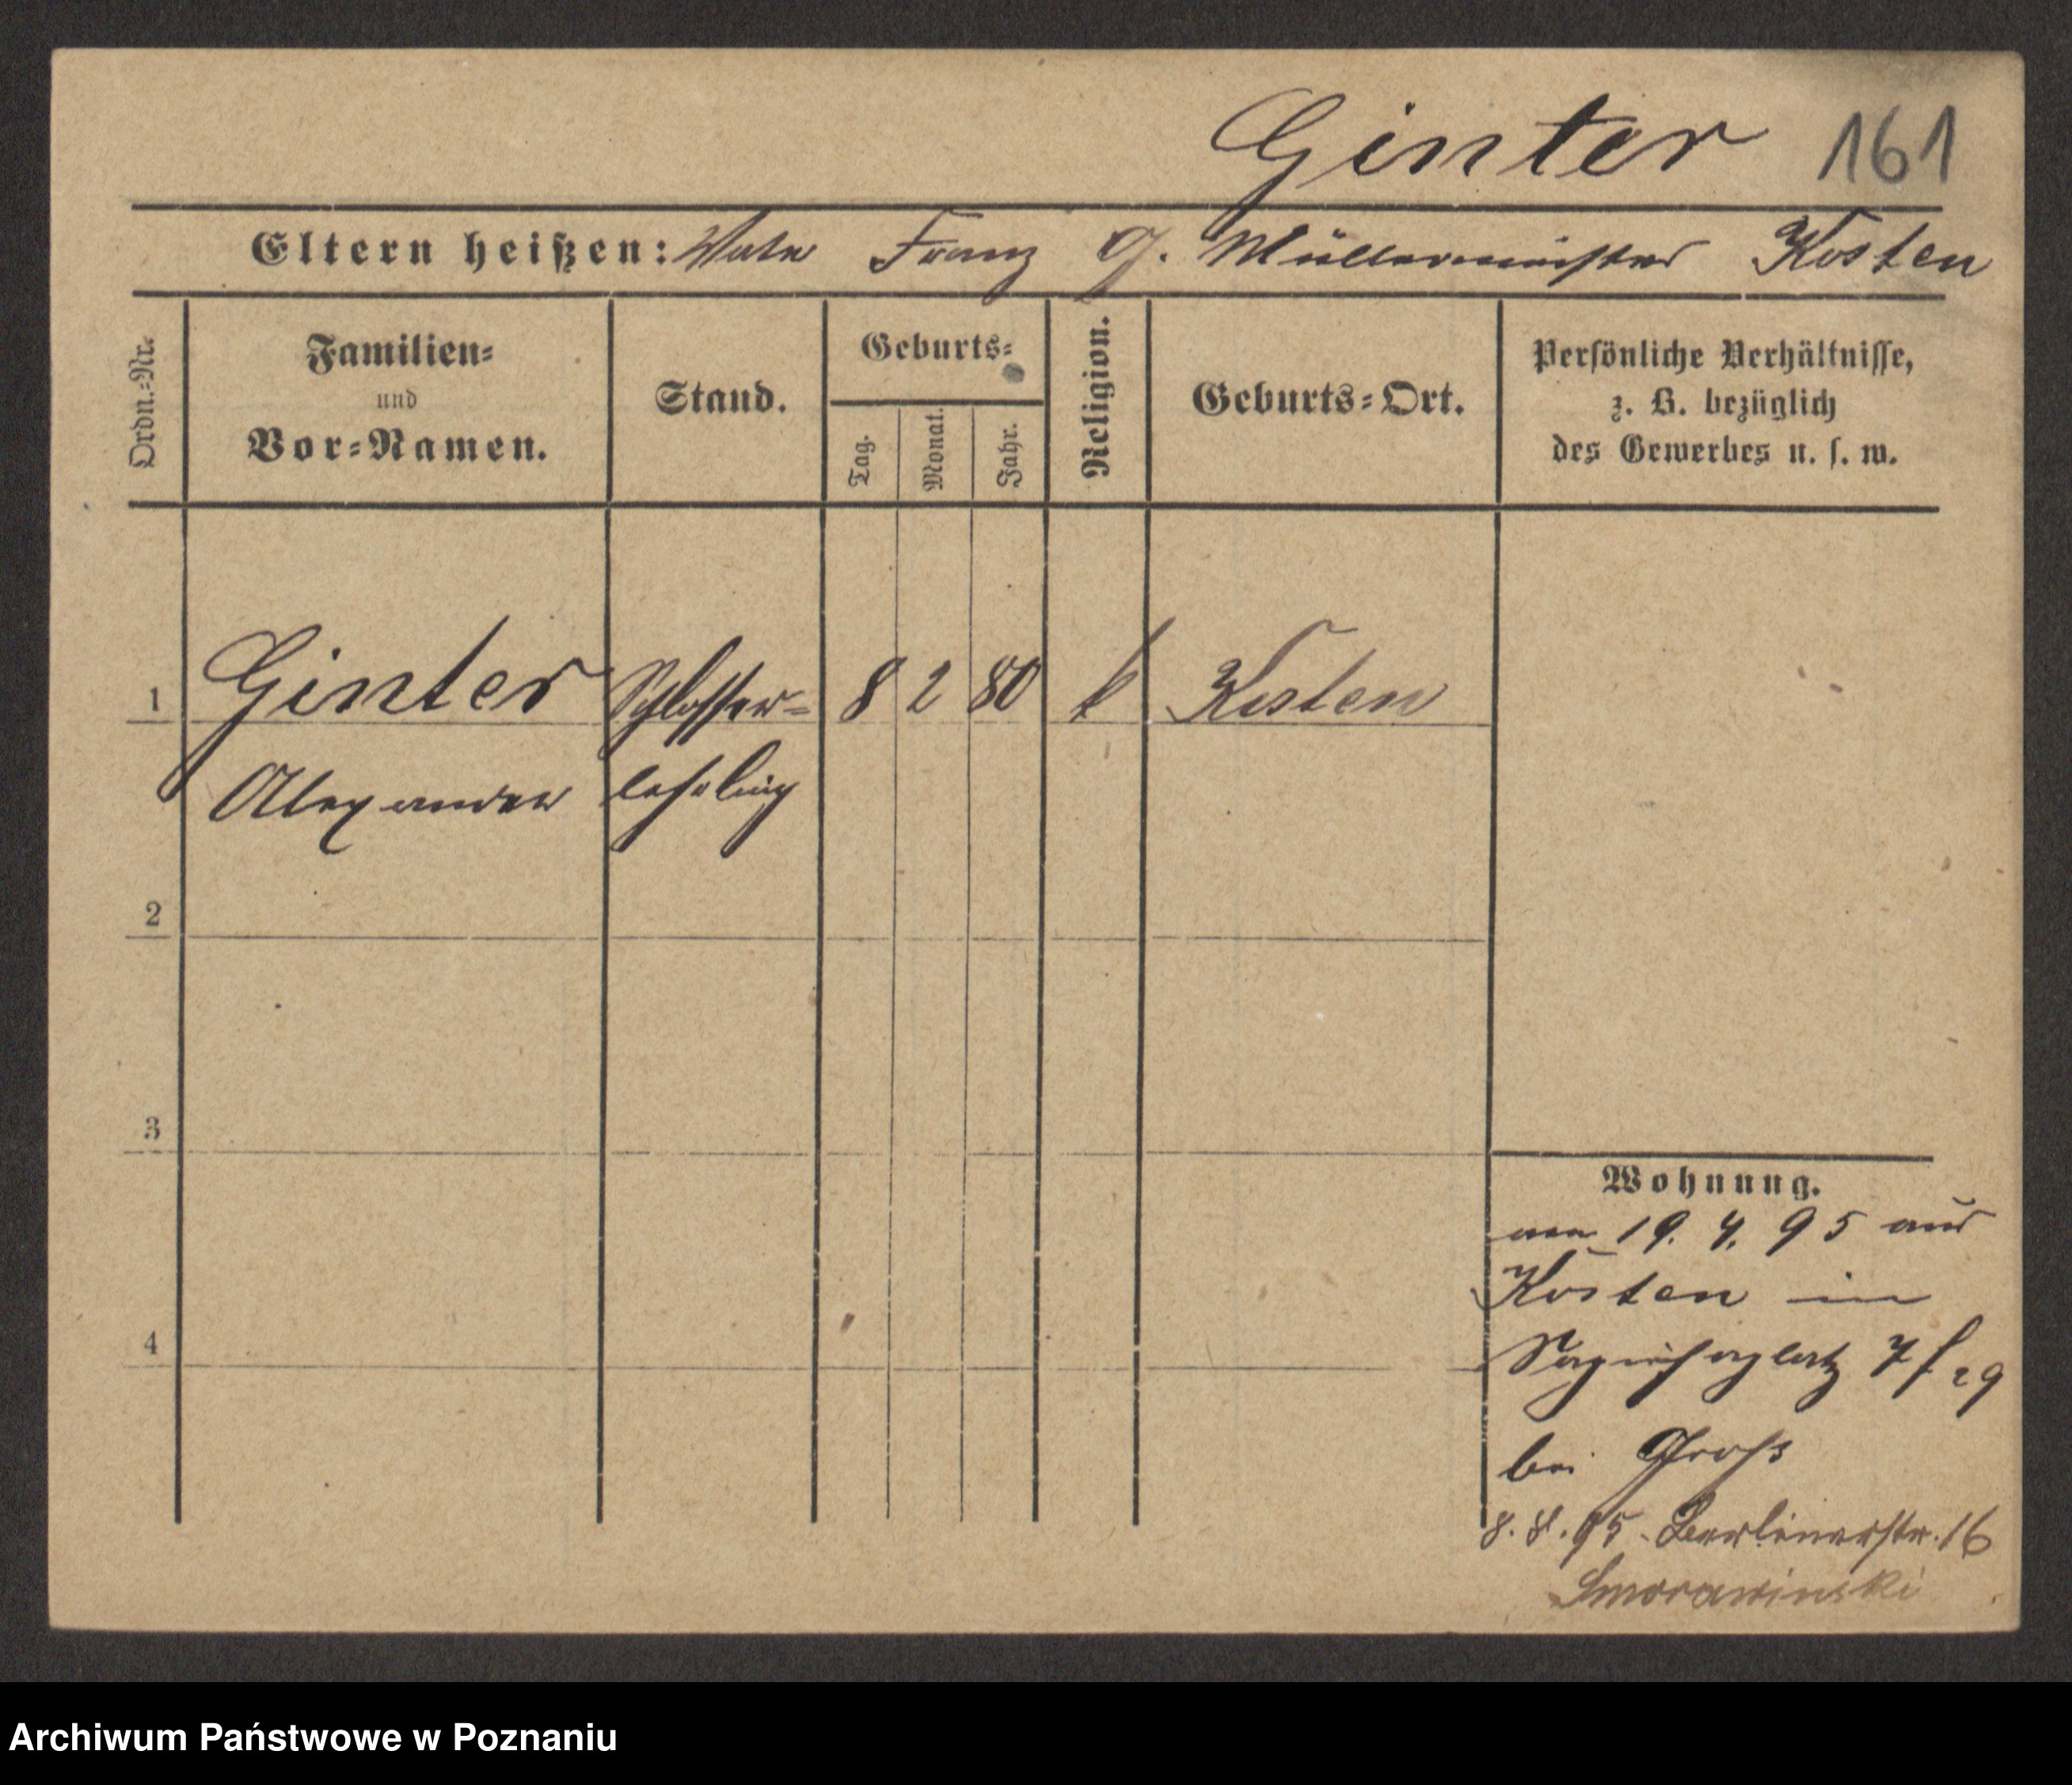 Ginter 161
Eltern heißen: Vater Franz G. Müllermeister Kosten
Ordn.=Nr.
Familien=
und
Vor=Namen.
Stand.
Geburts=
Tag.
Monat.
Jahr.
Religion.
Geburts=Ort.
Persönliche Verhältnisse,
z. B. bezüglich
des Gewerbes u. s. w.
1 Ginter Schlosser= 8 2 80 k Kosten
Alexander lehrling
2
3
4
Wohnung.
19. 4. 95 aus
Kosten in
Sapiehaplatz 7
bei Groß
8. 8. 95. Berlinerstr. 16
Smorawinski
Archiwum Państwowe w Poznaniu